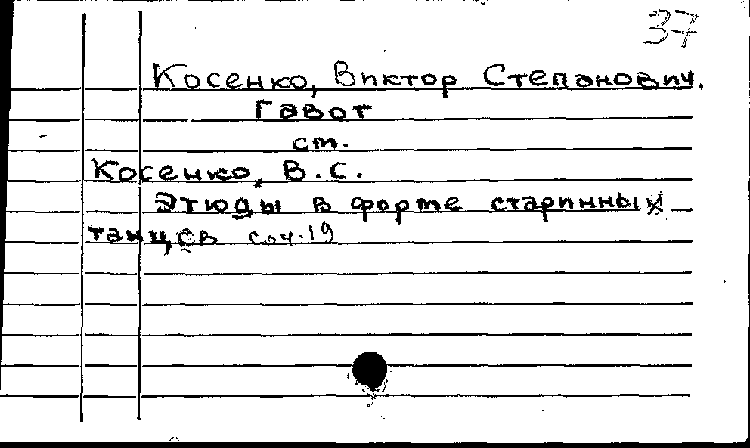 37
Косенко, Виктор Степанович.
Гавот
см.
Косенко, В.С.
Этюды в форме старинных
танцев соч.19